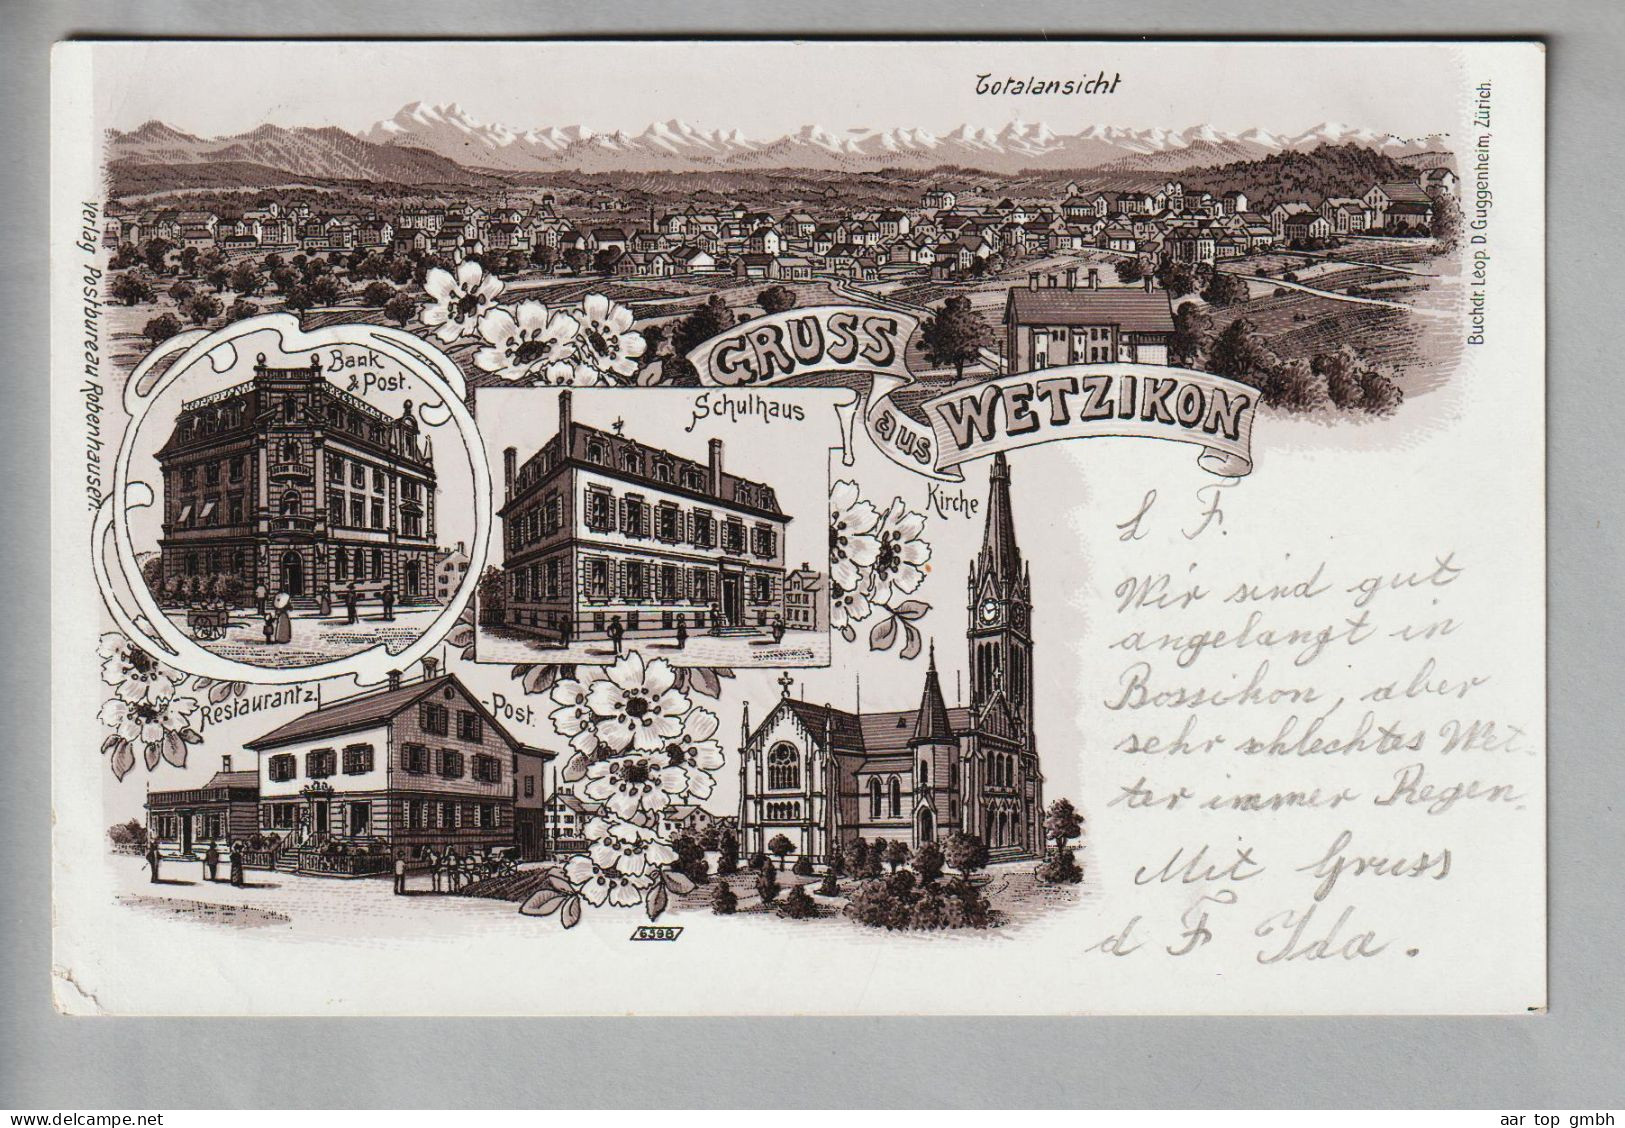 Totalansicht
Verlag Postbureau Robenhausen.
Buchdr. Leop. D. Guggenheim, Zürich.
GRUSS
aus
WETZIKON
Bank
& Post.
Schulhaus
Kirche
Restaurant z.
-Post.
6598
L F.
Wir sind gut
angelangt in
Bossikon, aber
sehr schlechtes Wet-
ter immer Regen.
Mit Gruss
d F Ida.
aar top gmbh
www.delcampe.net